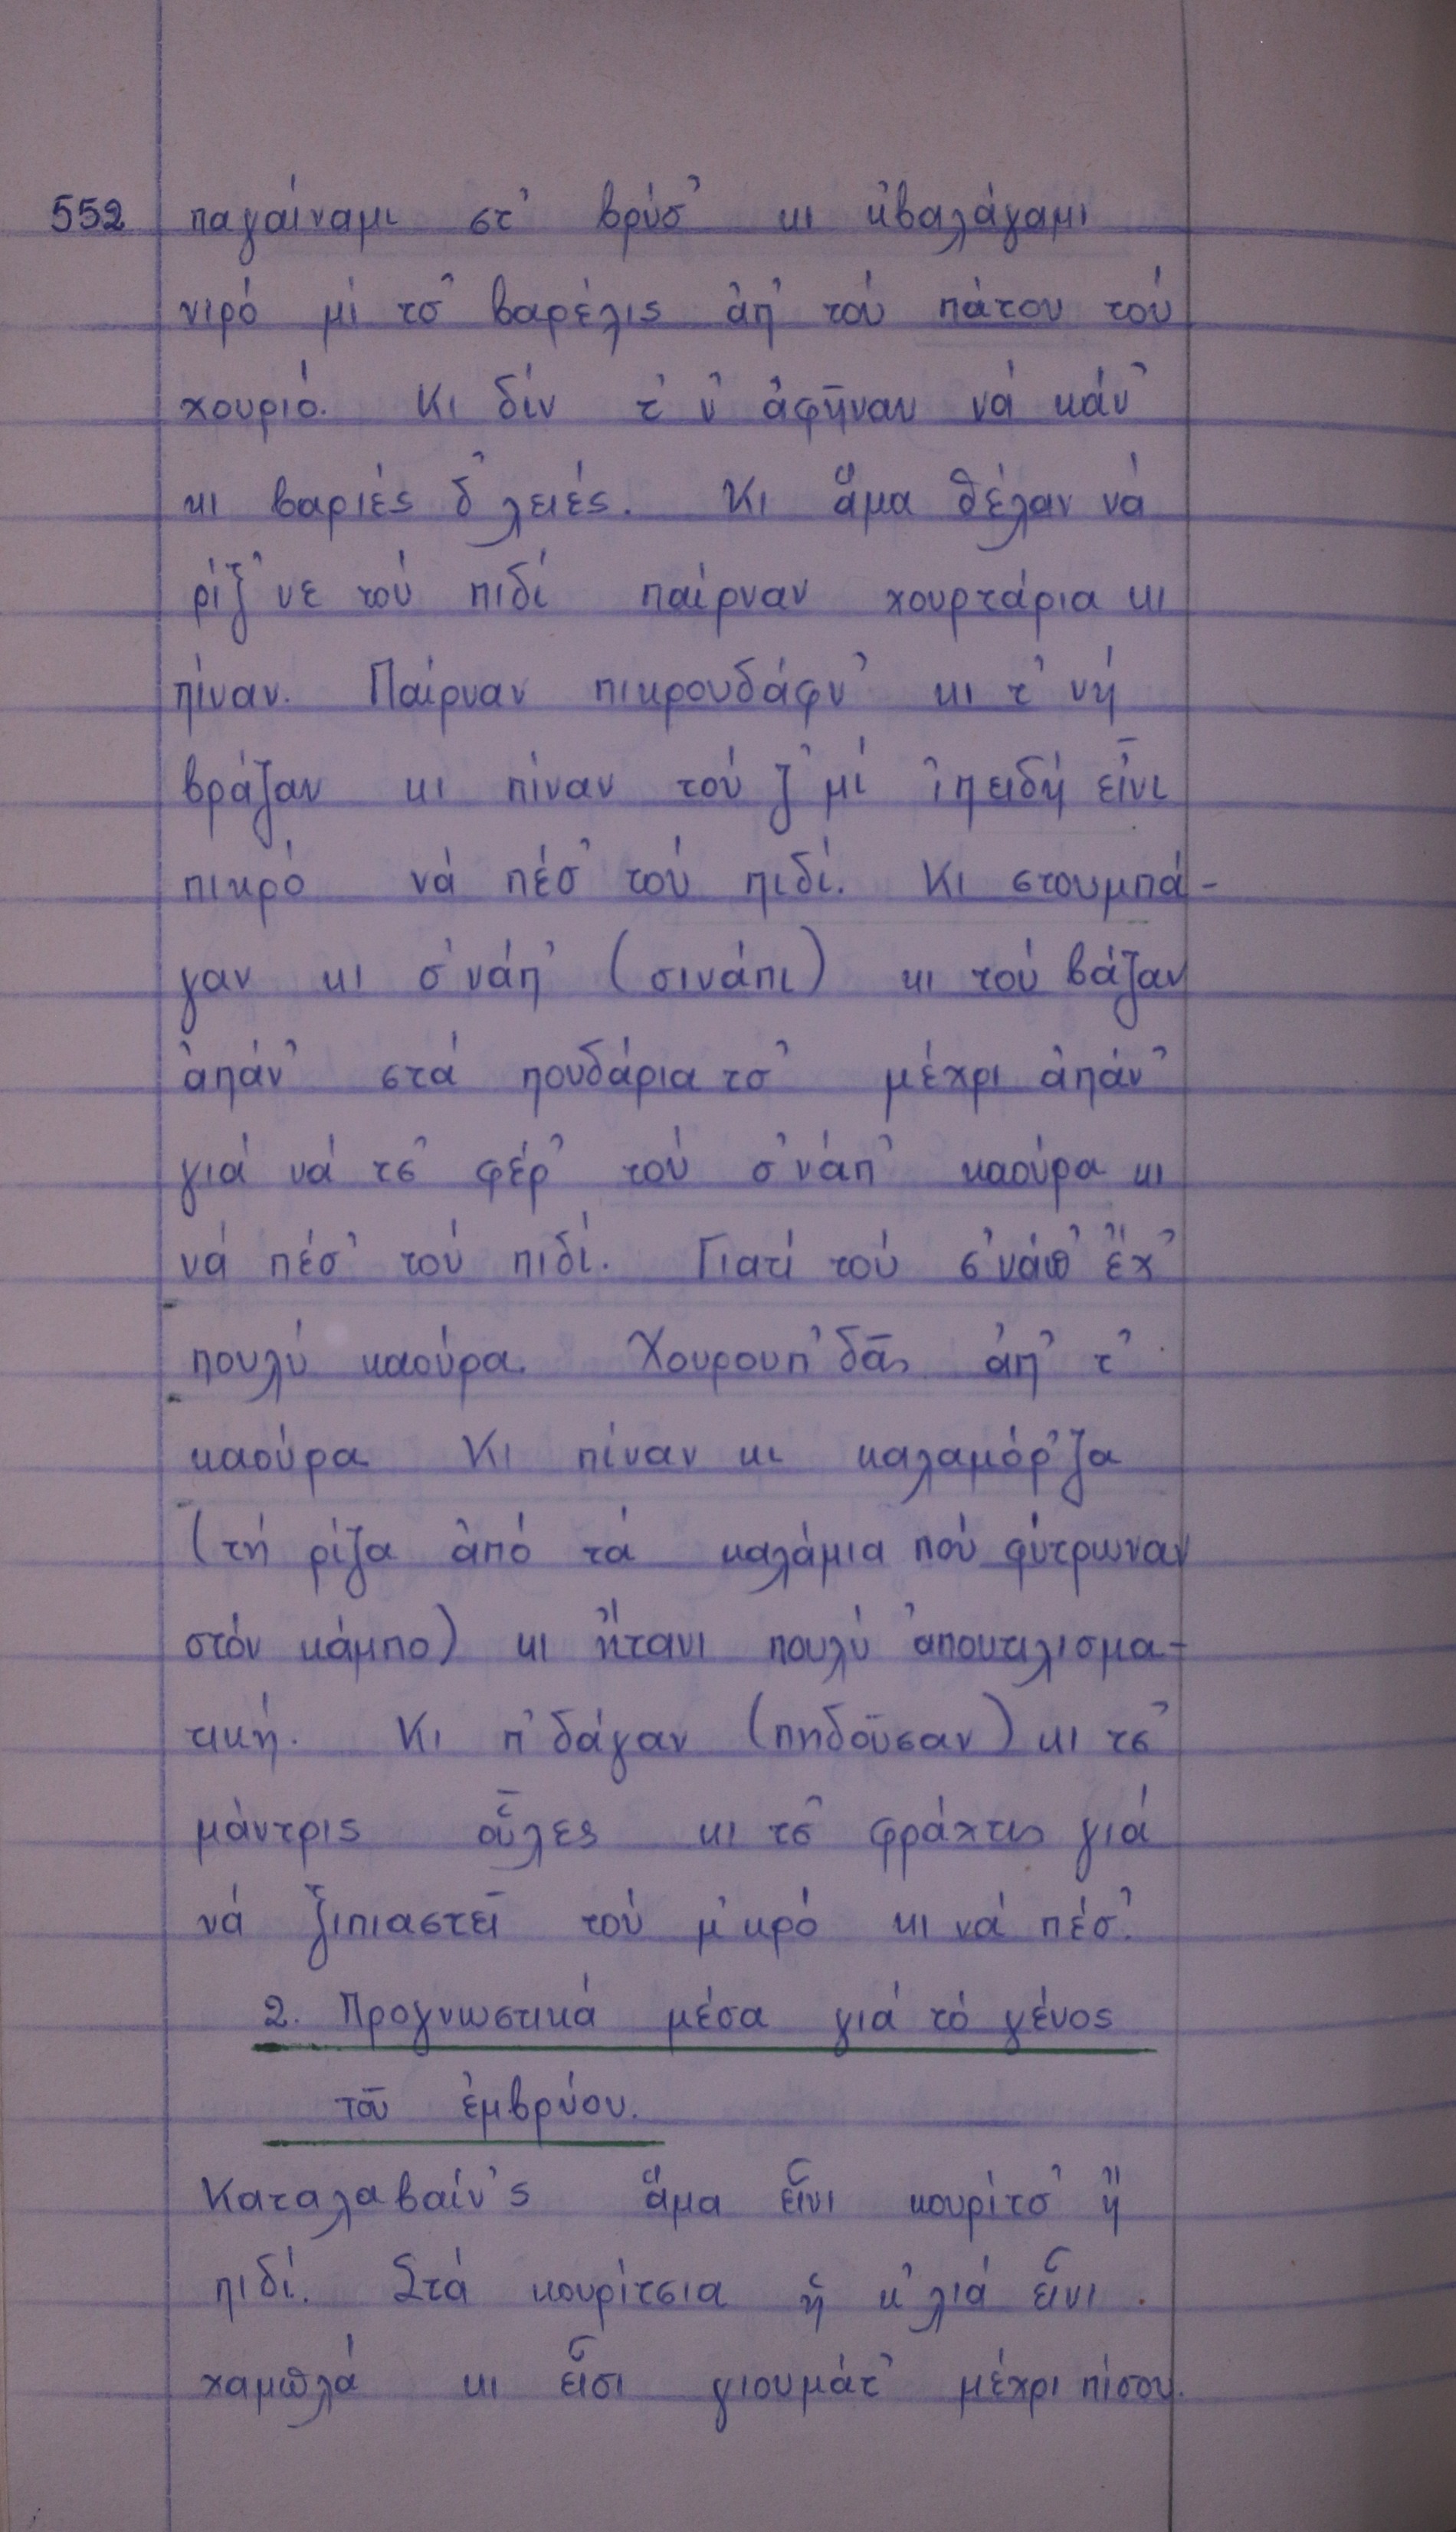 552 παγαίναμι στ' βρύσ' κι κ̓βαλάγαμι
νιρό μί τσ' βαρέλις ἀπ' τού πάτου τού
χουριό. Κι δίν τ' ν' ἀφῆναν νά κάν'
κι βαριές δ'λειές. Κι ἅμα θέλαν νά
ρίξ'νε τού πιδί παίρναν χουρτάρια κι
πίναν. Παίρναν πικρουδάφν' κι τ' νή
βράζαν κι πίναν τού ζ'μί ἰπειδή εἶνι
πικρό νά πέσ' τού πιδί. Κι στουμπά-
γαν κι σ'νάπ' (σινάπι) κι τού βάζαν
ἀπάν' στά πουδάρια τσ' μέχρι ἀπάν'
γιά νά τσ' φέρ' τού σ'νάπ' καούρα κι
νά πέσ' τού πιδί. Γιατί τού σ'νάπ' ἔχ'
πουλύ καούρα. Χουρουπ'δᾶς ἀπ' τ'
καούρα. Κι πίναν κι καλαμόρ'ζα
(τή ρίζα ἀπό τά καλάμια πού φύτρωναν
στόν κάμπο) κι ἤτανι πουλύ ἀπουτιλισμα-
τική. Κι π'δάγαν (πηδοῦσαν) κι τσ'
μάντρις οὗλες κι τσ' φράχτις γιά
νά ξιπιαστεῖ τού μ'κρό κι νά πέσ'.
2. Προγνωστικά μέσα γιά τό γένος
τοῦ ἐμβρύου.
Καταλαβαίν'ς ἅμα εἶνι κουρίτσ' ἤ
πιδί. Στά κουρίτσια ἡ κ'λιά εἶνι
χαμπλά κι εἶσι γιουμάτ' μέχρι πίσου.